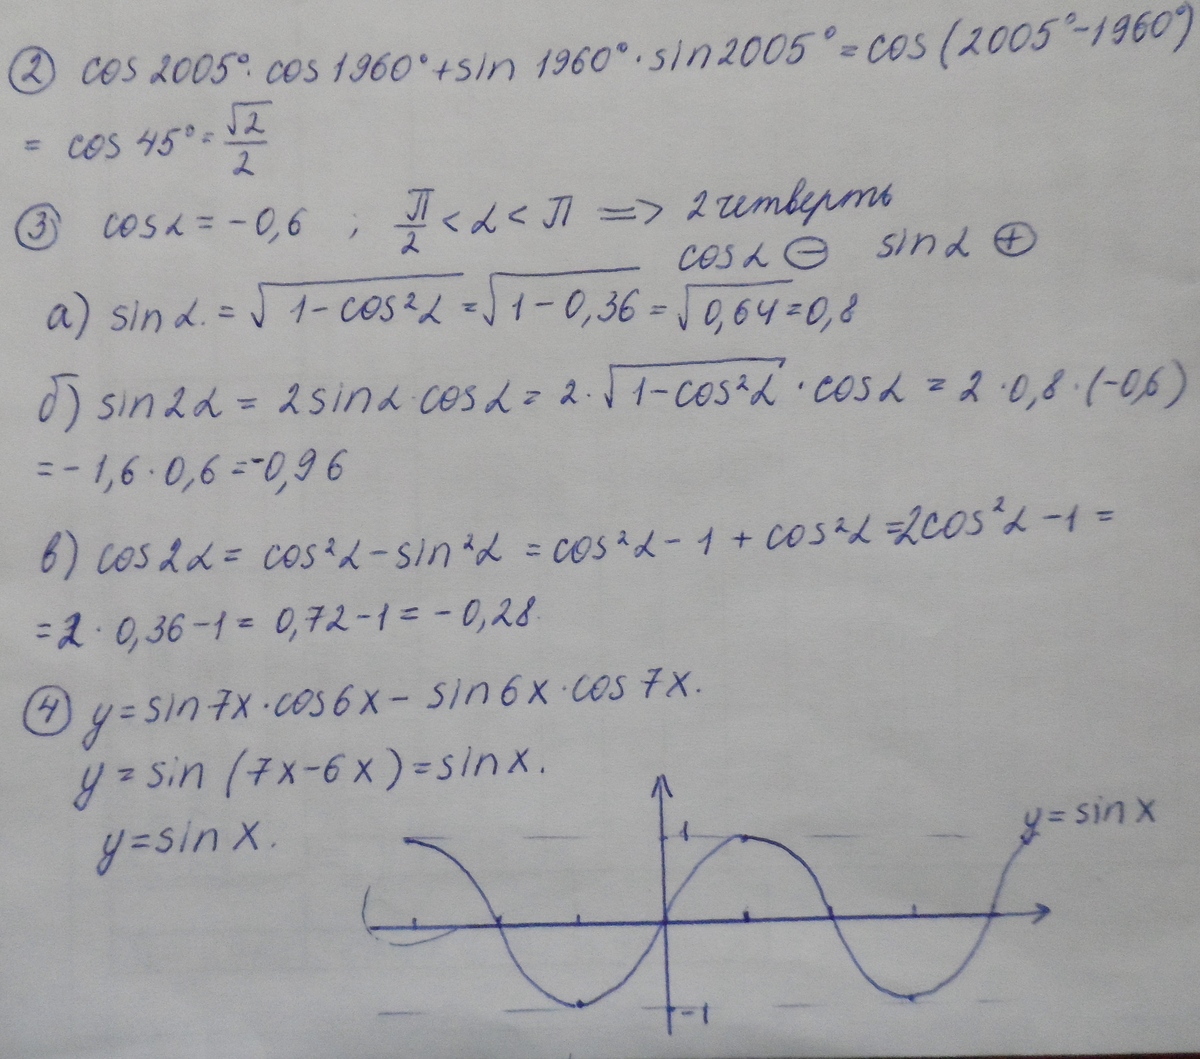 ② cos 2005° · cos 1960° + sin 1960° · sin 2005° = cos (2005° - 1960°)
= cos 45° = √2/2
③ cos α = -0,6 ; π/2 < α < π => 2 четверть
cos α ⊖ sin α ⊕
а) sin α = √(1 - cos²α) = √(1 - 0,36) = √0,64 = 0,8
б) sin 2α = 2 sin α · cos α = 2 · √(1 - cos²α) · cos α = 2 · 0,8 · (-0,6)
= -1,6 · 0,6 = -0,96
в) cos 2α = cos²α - sin²α = cos²α - 1 + cos²α = 2cos²α - 1 =
= 2 · 0,36 - 1 = 0,72 - 1 = -0,28
④ y = sin 7x · cos 6x - sin 6x · cos 7x.
y = sin (7x - 6x) = sin x.
y = sin x.
1
y = sin x
-1